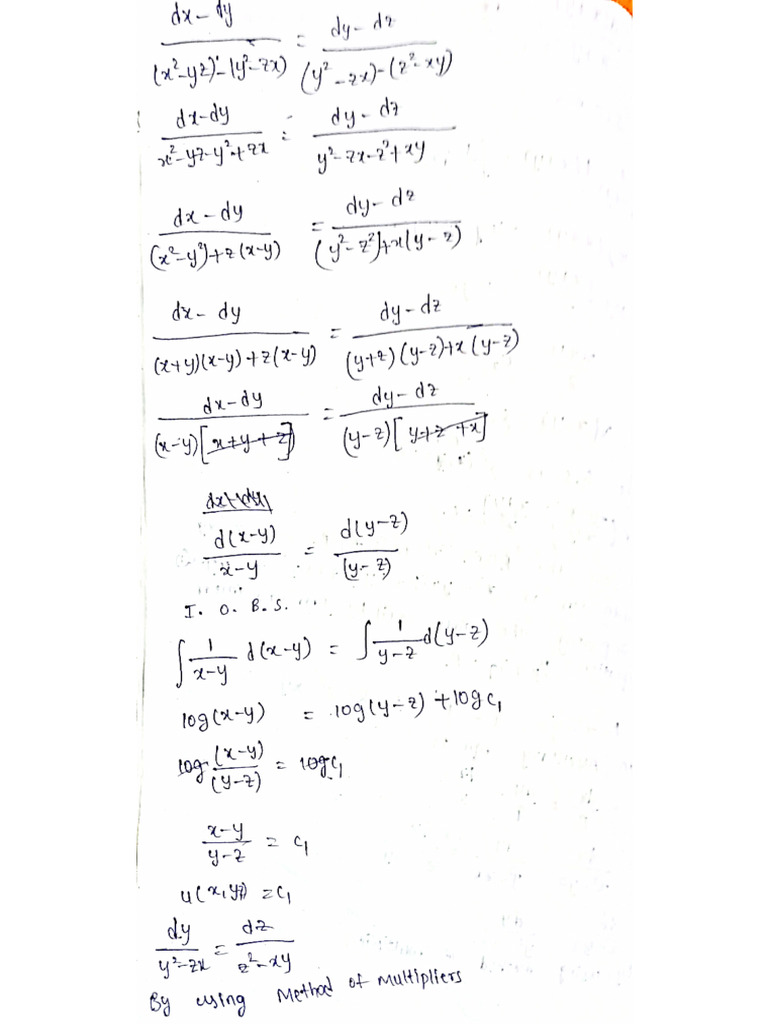 dx-dy / (x²-yz)-(y²-zx) = dy-dz / (y²-zx)-(z²-xy)
dx-dy / x²-yz-y²+zx = dy-dz / y²-zx-z²+xy
dx-dy / (x²-y²)+z(x-y) = dy-dz / (y²-z²)+x(y-z)
dx-dy / (x+y)(x-y)+z(x-y) = dy-dz / (y+z)(y-z)+x(y-z)
dx-dy / (x-y)[x+y+z] = dy-dz / (y-z)[y+z+x]
d(x-y) / x-y = d(y-z) / (y-z)
I. O. B. S.
∫ 1/x-y d(x-y) = ∫ 1/y-z d(y-z)
log(x-y) = log(y-z) + log c₁
log (x-y)/(y-z) = log c₁
x-y / y-z = c₁
u(x,y,z) = c₁
dy / y²-zx = dz / z²-xy
By using Method of multipliers